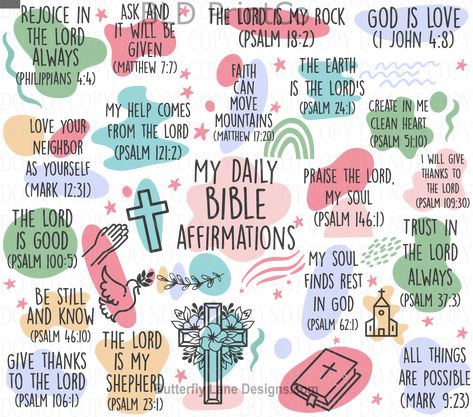 REJOICE IN
THE LORD
ALWAYS
(PHILIPPIANS 4:4)
ASK AND
IT WILL BE
GIVEN
(MATTHEW 7:7)
THE LORD IS MY ROCK
(PSALM 18:2)
GOD IS LOVE
(1 JOHN 4:8)
FAITH
CAN
MOVE
MOUNTAINS
(MATTHEW 17:20)
THE EARTH
IS THE LORD'S
(PSALM 24:1)
MY HELP COMES
FROM THE LORD
(PSALM 121:2)
CREATE IN ME
CLEAN HEART
(PSALM 51:10)
LOVE YOUR
NEIGHBOR
AS YOURSELF
(MARK 12:31)
MY DAILY
BIBLE
AFFIRMATIONS
PRAISE THE LORD,
MY SOUL
(PSALM 146:1)
I WILL GIVE
THANKS TO
THE LORD
(PSALM 109:30)
THE LORD
IS GOOD
(PSALM 100:5)
TRUST IN
THE LORD
ALWAYS
(PSALM 37:3)
MY SOUL
FINDS REST
IN GOD
(PSALM 62:1)
BE STILL
AND KNOW
(PSALM 46:10)
THE LORD
IS MY
SHEPHERD
(PSALM 23:1)
GIVE THANKS
TO THE LORD
(PSALM 106:1)
ALL THINGS
ARE POSSIBLE
(MARK 9:23)
Butterfly Lane Designs.com